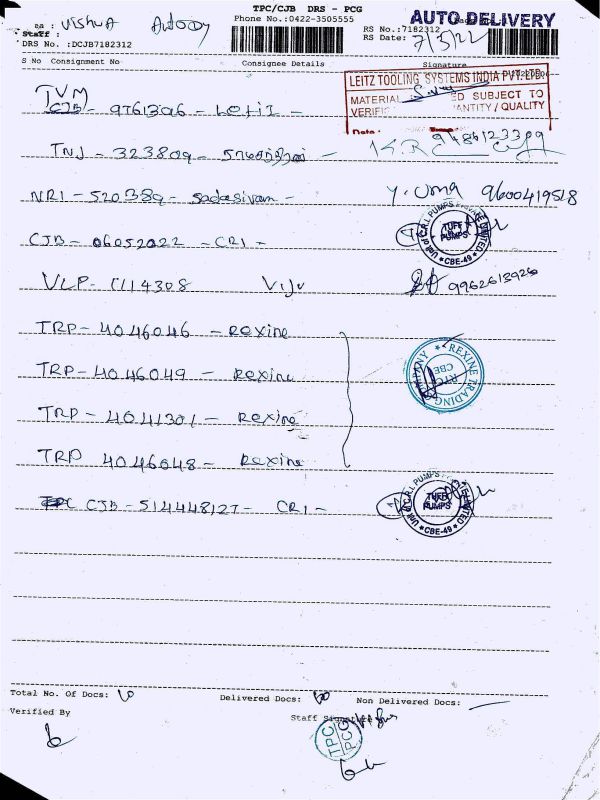 TPC/CJB DRS - PCG
Phone No.:0422-3505555
AUTO DELIVERY
ea : Vishwa
Staff :
DRS No. :DCJB7182312
RS No.:7182312
RS Date: 7/3/22
S No Consignment No Consignee Details Signature
LEITZ TOOLING SYSTEMS INDIA PVT. LTD
MATERIAL ED SUBJECT TO
VERIFIC ANTITY / QUALITY
Date :
TVM
CJB - 9761306 - Letiz -
TNJ - 323809 -
NRI - 520389 - Sadasivam - Y. Uma 9600419518
CJB - 06052022 - CRI -
Unit of C.R.I. PUMPS PRIVATE LIMITED
TUFF PUMPS
* CBE-49 *
VLP - 1114308 Viju 9962613926
TRP - 4046046 - Rexine
TRP - 4046049 - Rexine
REXINE TRADING COMPANY
RTC
CBE
TRP - 4041301 - Rexine
TRP 4046048 - Rexine
CJB - 514448127 - CRI -
Unit of C.R.I. PUMPS PRIVATE LIMITED
TUFF PUMPS
* CBE-49 *
Total No. Of Docs: 10 Delivered Docs: 10 Non Delivered Docs: —
Verified By Staff Signature
TPC
PCG